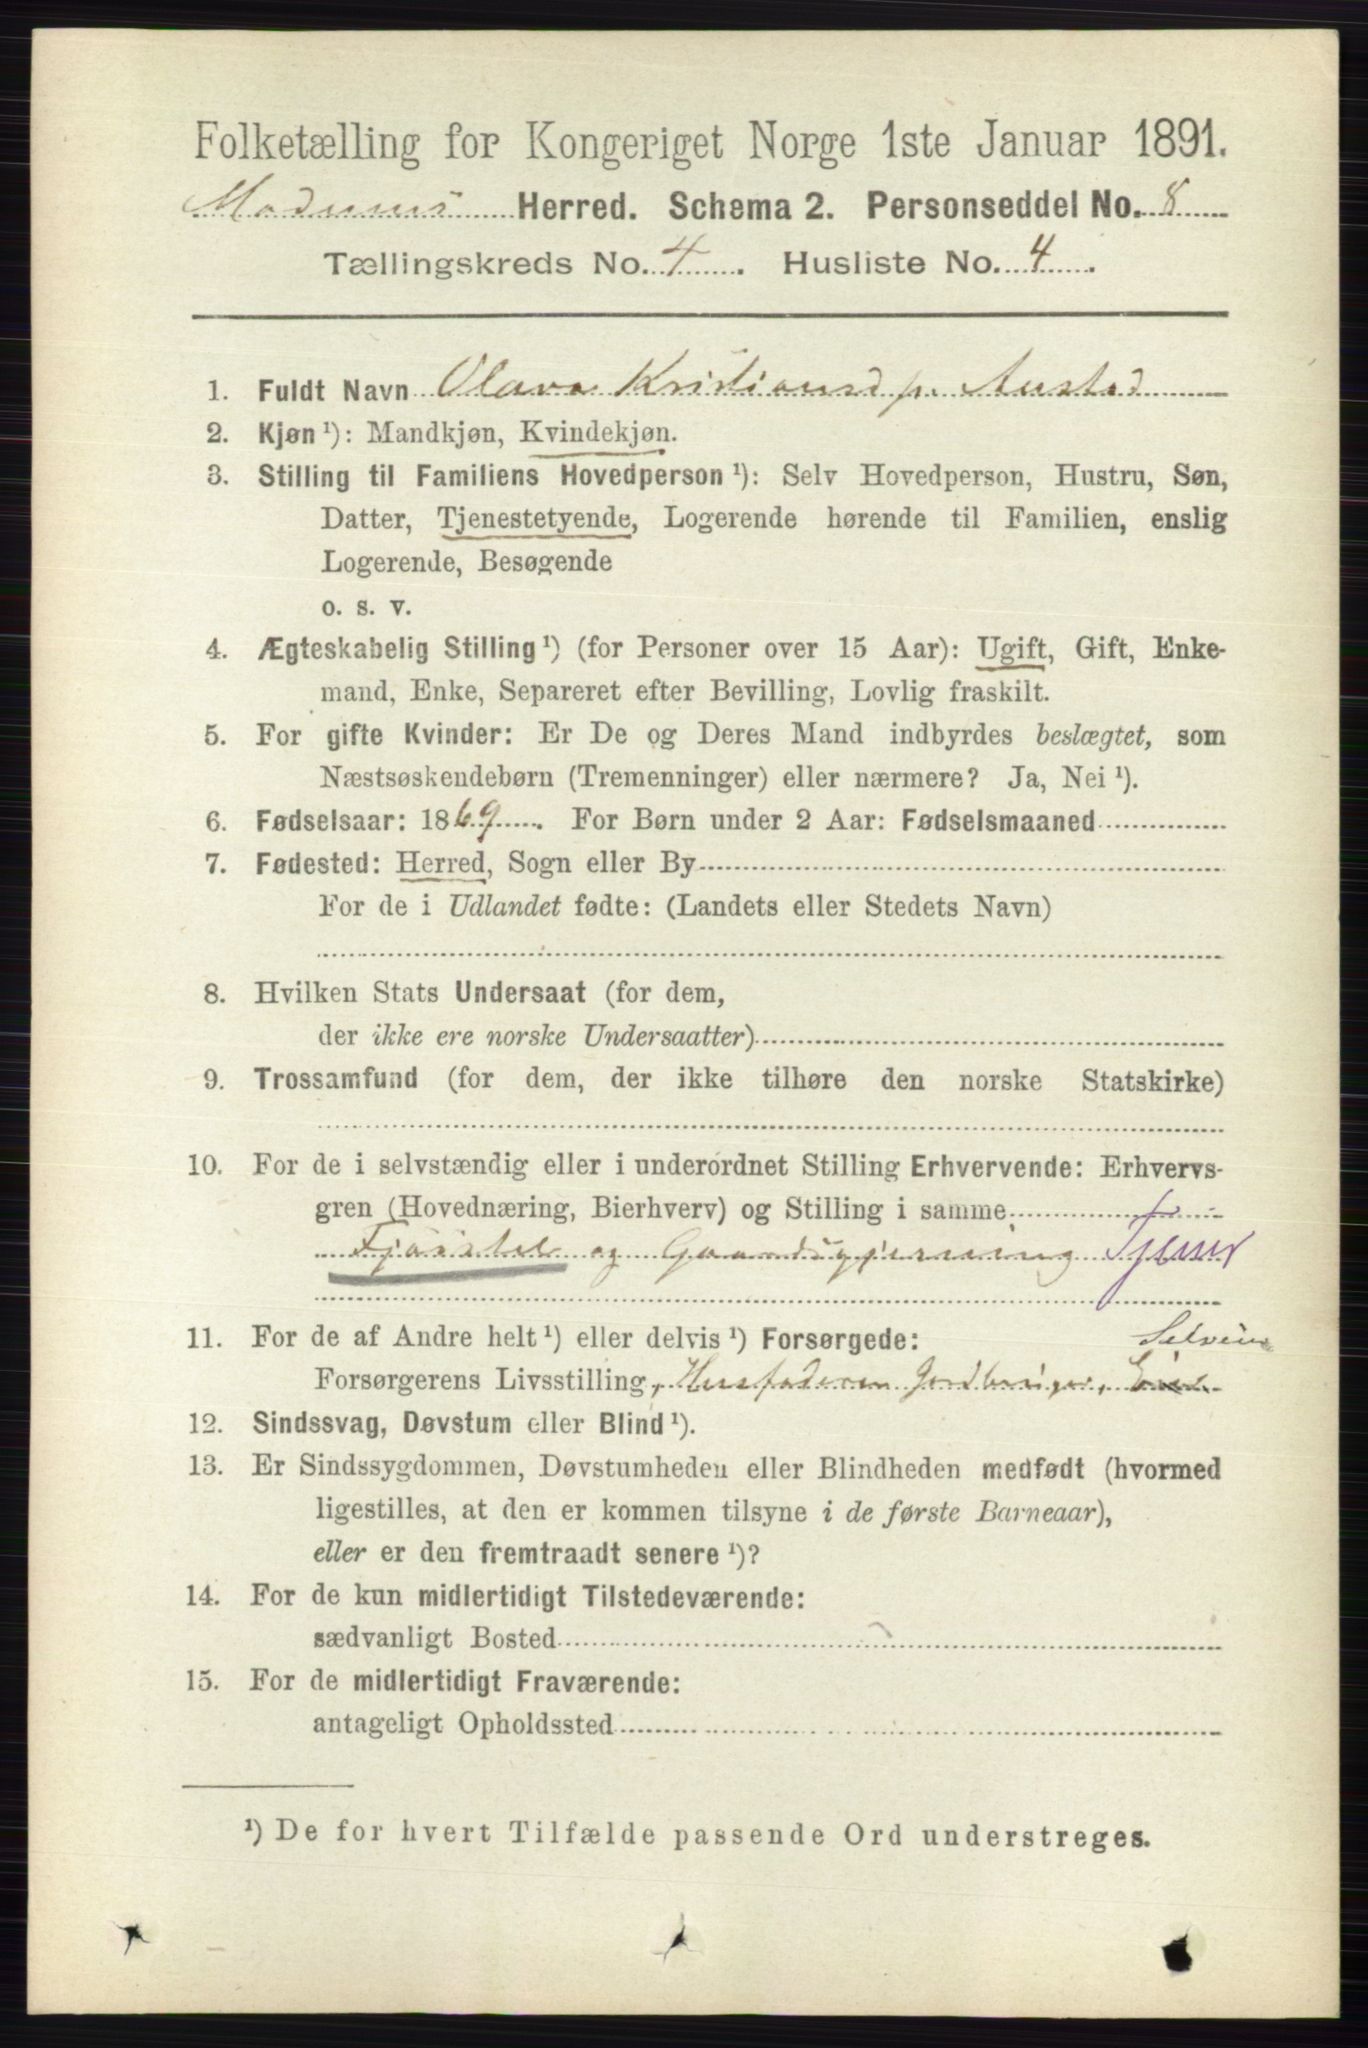 Folketælling for Kongeriget Norge 1ste Januar 1891.
Modums Herred. Schema 2. Personseddel No. 8
Tællingskreds No. 4. Husliste No. 4.
1. Fuldt Navn Olava Kristiansd p. Austad
2. Kjøn ¹): Mandkjøn, Kvindekjøn.
3. Stilling til Familiens Hovedperson ¹): Selv Hovedperson, Hustru, Søn,
Datter, Tjenestetyende, Logerende hørende til Familien, enslig
Logerende, Besøgende
o. s. v.
4. Ægteskabelig Stilling ¹) (for Personer over 15 Aar): Ugift, Gift, Enke-
mand, Enke, Separeret efter Bevilling, Lovlig fraskilt.
5. For gifte Kvinder: Er De og Deres Mand indbyrdes beslægtet, som
Næstsøskendebørn (Tremenninger) eller nærmere? Ja, Nei ¹).
6. Fødselsaar: 1869. For Børn under 2 Aar: Fødselsmaaned
7. Fødested: Herred, Sogn eller By
For de i Udlandet fødte: (Landets eller Stedets Navn)
8. Hvilken Stats Undersaat (for dem,
der ikke ere norske Undersaatter)
9. Trossamfund (for dem, der ikke tilhøre den norske Statskirke)
10. For de i selvstændig eller i underordnet Stilling Erhvervende: Erhvervs-
gren (Hovednæring, Bierhverv) og Stilling i samme
og Gaardsgjerning Tjener
11. For de af Andre helt ¹) eller delvis ¹) Forsørgede: Selveier
Forsørgerens Livsstilling, Husfaderen Jordbruger,
12. Sindssvag, Døvstum eller Blind ¹).
13. Er Sindssygdommen, Døvstumheden eller Blindheden medfødt (hvormed
ligestilles, at den er kommen tilsyne i de første Barneaar),
eller er den fremtraadt senere ¹)?
14. For de kun midlertidigt Tilstedeværende:
sædvanligt Bosted
15. For de midlertidigt Fraværende:
antageligt Opholdssted
¹) De for hvert Tilfælde passende Ord understreges.